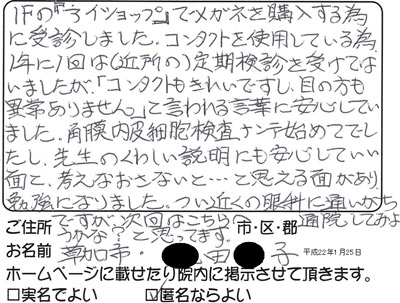 1Fの『アイショップ』でメガネを購入する為
に受診しました。コンタクトを使用している為、
1年に1回は(近所の)定期検診を受けては
いましたが、「コンタクトもきれいですし、目の方も
異常ありません。」と言われる言葉に安心してい
ました。角膜内皮細胞検査ナンテ始めてでし
たし、先生のくわしい説明にも安心していい
面と、考えなおさないと…と思える面があり
勉強になりました。つい近くの眼科に通いがち
ですが、次回はこちらへ通院してみよ
うかな?と思ってます。
ご住所 草加市 市・区・郡
お名前 田 子 平成22年1月25日
ホームページに載せたり院内に掲示させて頂きます。
□実名でよい ☑匿名ならよい